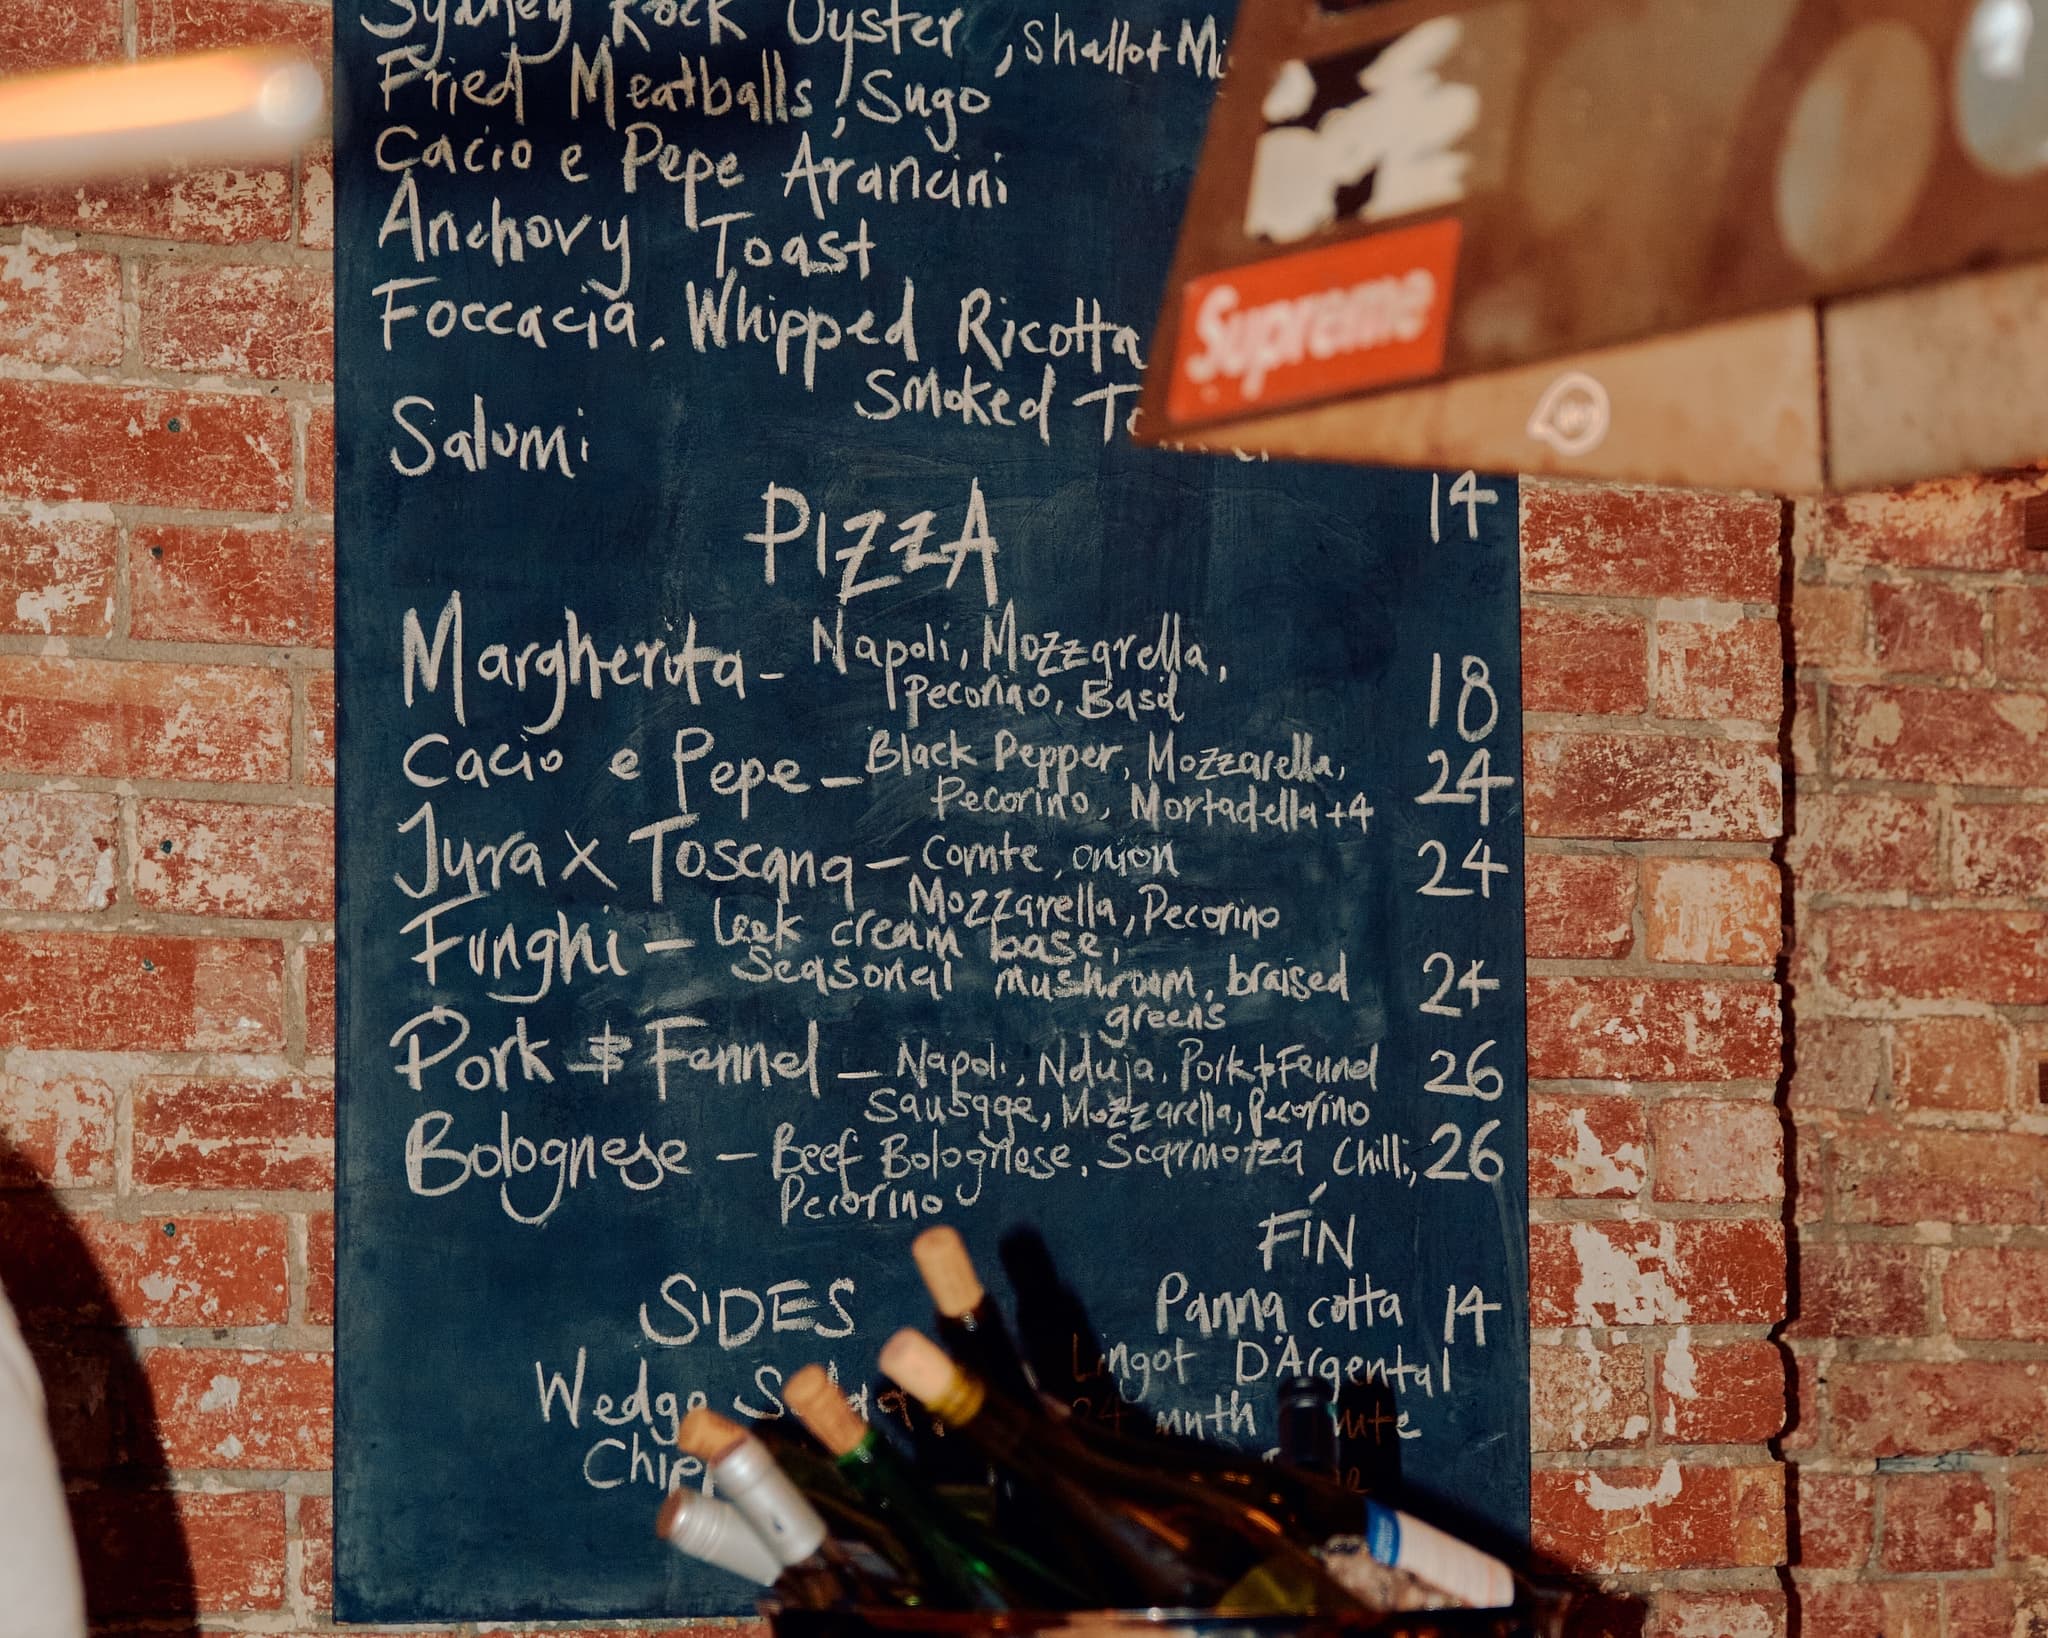 Sydney Rock Oyster, Shallot
Fried Meatballs, Sugo
Cacio e Pepe Arancini
Anchovy Toast
Foccacia, Whipped Ricotta
Smoked
Salumi
14
PIZZA
Margherita - Napoli, Mozzarella,
Pecorino, Basil
18
Cacio e Pepe - Black Pepper, Mozzarella,
Pecorino, Mortadella +4
24
Jura x Toscana - Comte, onion
Mozzarella, Pecorino
24
Funghi - Leek cream base,
Seasonal mushroom, braised
greens
24
Pork & Fennel - Napoli, Nduja, Pork & Fennel
Sausage, Mozzarella, Pecorino
26
Bolognese - Beef Bolognese, Scarmorza Chilli,
Pecorino
26
SIDES
Wedge
FÍN
Panna cotta 14
Lingot D'Argental
24 mnth
Supreme